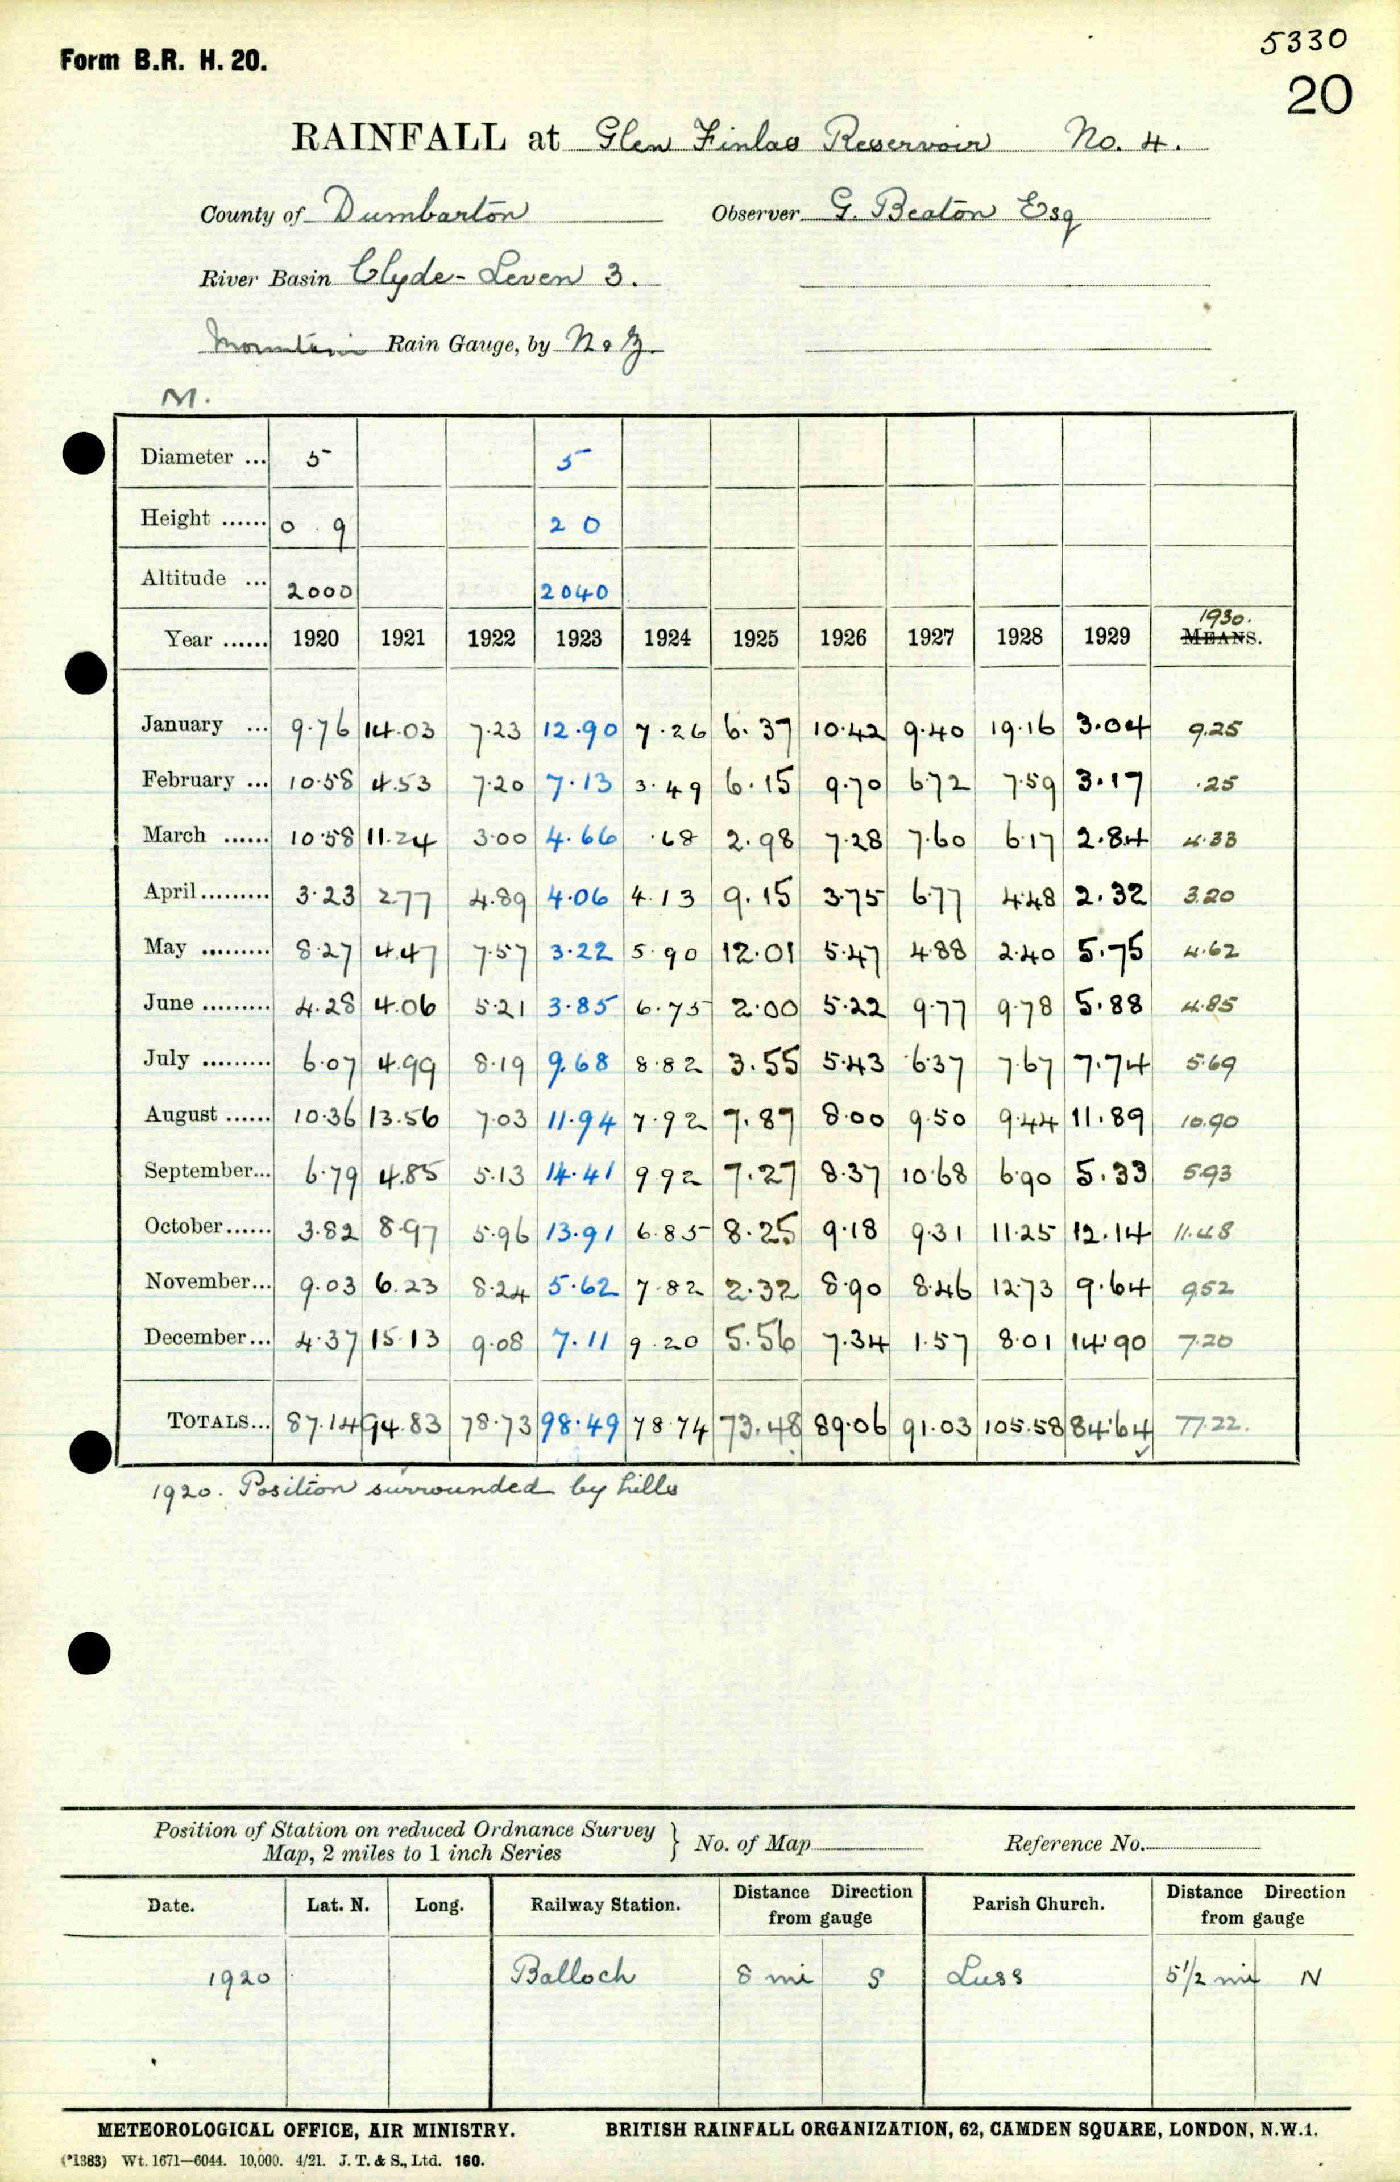 Form B.R. H. 20.
5330
20
RAINFALL at Glen Finlas Reservoir No. 4.
County of Dumbarton Observer G. Beaton Esq
River Basin Clyde - Leven 3.
Mountain Rain Gauge, by N & Z.
M.
Diameter ... 5 5
Height ...... 0 9 2 0
Altitude ... 2000 2040
1930.
Year ...... 1920 1921 1922 1923 1924 1925 1926 1927 1928 1929 MEANS.
January ... 9.76 14.03 7.23 12.90 7.26 6.37 10.42 9.40 19.16 3.04 9.25
February ... 10.58 4.53 7.20 7.13 3.49 6.15 9.70 6.72 7.59 3.17 .25
March ...... 10.58 11.24 3.00 4.66 .68 2.98 7.28 7.60 6.17 2.84 4.33
April ......... 3.23 2.77 4.89 4.06 4.13 9.15 3.75 6.77 4.48 2.32 3.20
May ......... 8.27 4.47 7.57 3.22 5.90 12.01 5.47 4.88 2.40 5.75 4.62
June ......... 4.28 4.06 5.21 3.85 6.75 2.00 5.22 9.77 9.78 5.88 4.85
July ......... 6.07 4.99 8.19 9.68 8.82 3.55 5.43 6.37 7.67 7.74 5.69
August ...... 10.36 13.56 7.03 11.94 7.92 7.87 8.00 9.50 9.44 11.89 10.90
September... 6.79 4.85 5.13 14.41 9.92 7.27 8.37 10.68 6.90 5.33 5.93
October...... 3.82 8.97 5.96 13.91 6.85 8.25 9.18 9.31 11.25 12.14 11.48
November... 9.03 6.23 8.24 5.62 7.82 2.32 8.90 8.46 12.73 9.64 9.52
December... 4.37 15.13 9.08 7.11 9.20 5.56 7.34 1.57 8.01 14.90 7.20
TOTALS... 87.14 94.83 78.73 98.49 78.74 73.48 89.06 91.03 105.58 84.64 77.22.
1920. Position surrounded by hills
Position of Station on reduced Ordnance Survey
Map, 2 miles to 1 inch Series } No. of Map Reference No.
Date. Lat. N. Long. Railway Station. Distance Direction from gauge Parish Church. Distance Direction from gauge
1920 Balloch 8 mi S Luss 5 1/2 mi N
METEOROLOGICAL OFFICE, AIR MINISTRY. BRITISH RAINFALL ORGANIZATION, 62, CAMDEN SQUARE, LONDON, N.W.1.
(*1383) Wt. 1671—6044. 10,000. 4/21. J. T. & S., Ltd. 160.